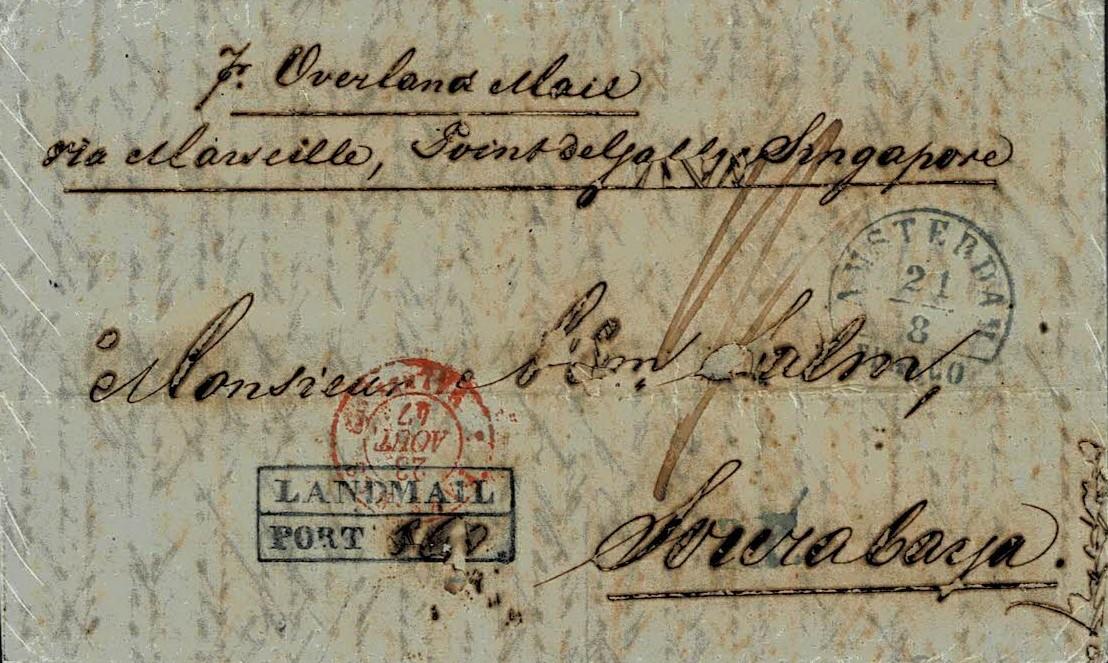 pr. Overland Mail
via Marseille, Point de Galle Singapore
AMSTERDAM
21
8
FRANCO
à Monsieur Salm,
47
AOUT
23
LANDMAIL
PORT
Sourabaya.